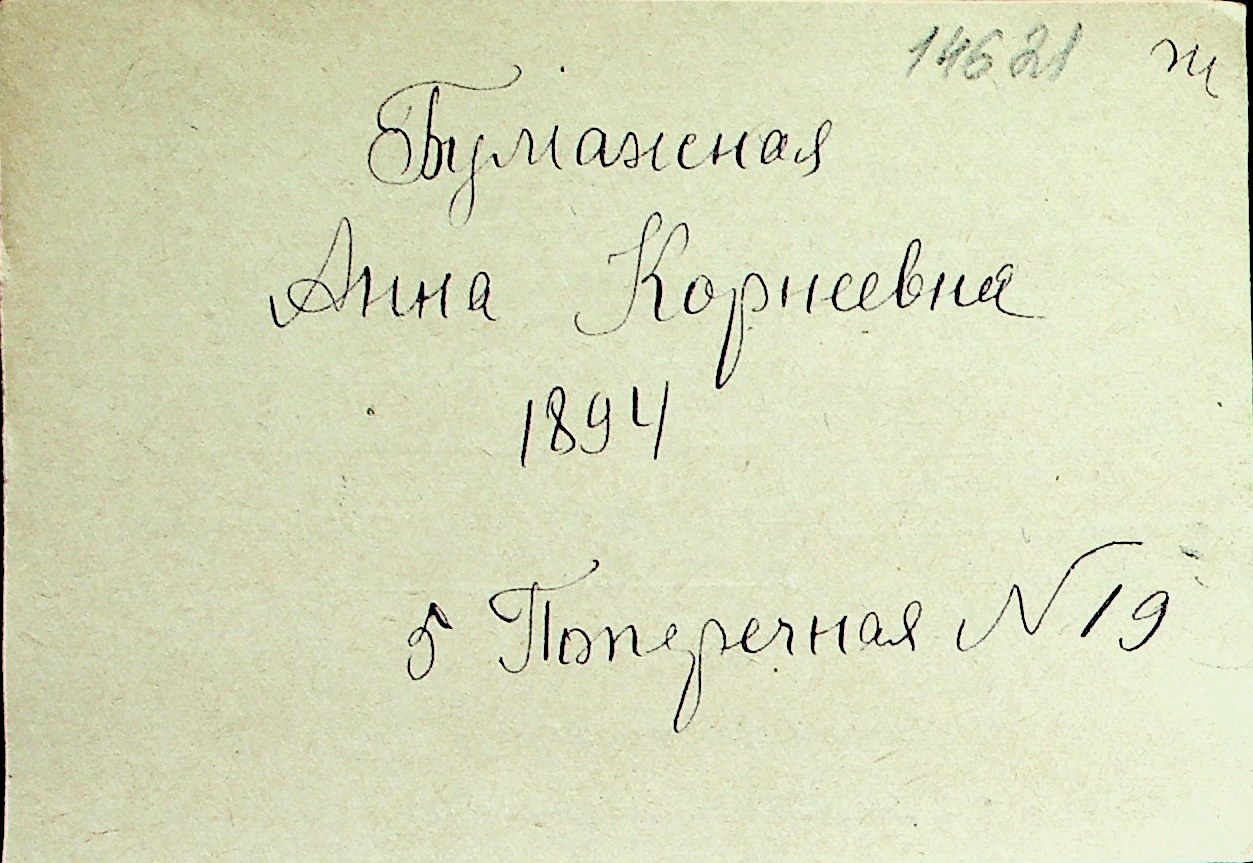 14621 ж
Бумажная
Анна Корнеевна
1894
5 Поперечная N 19